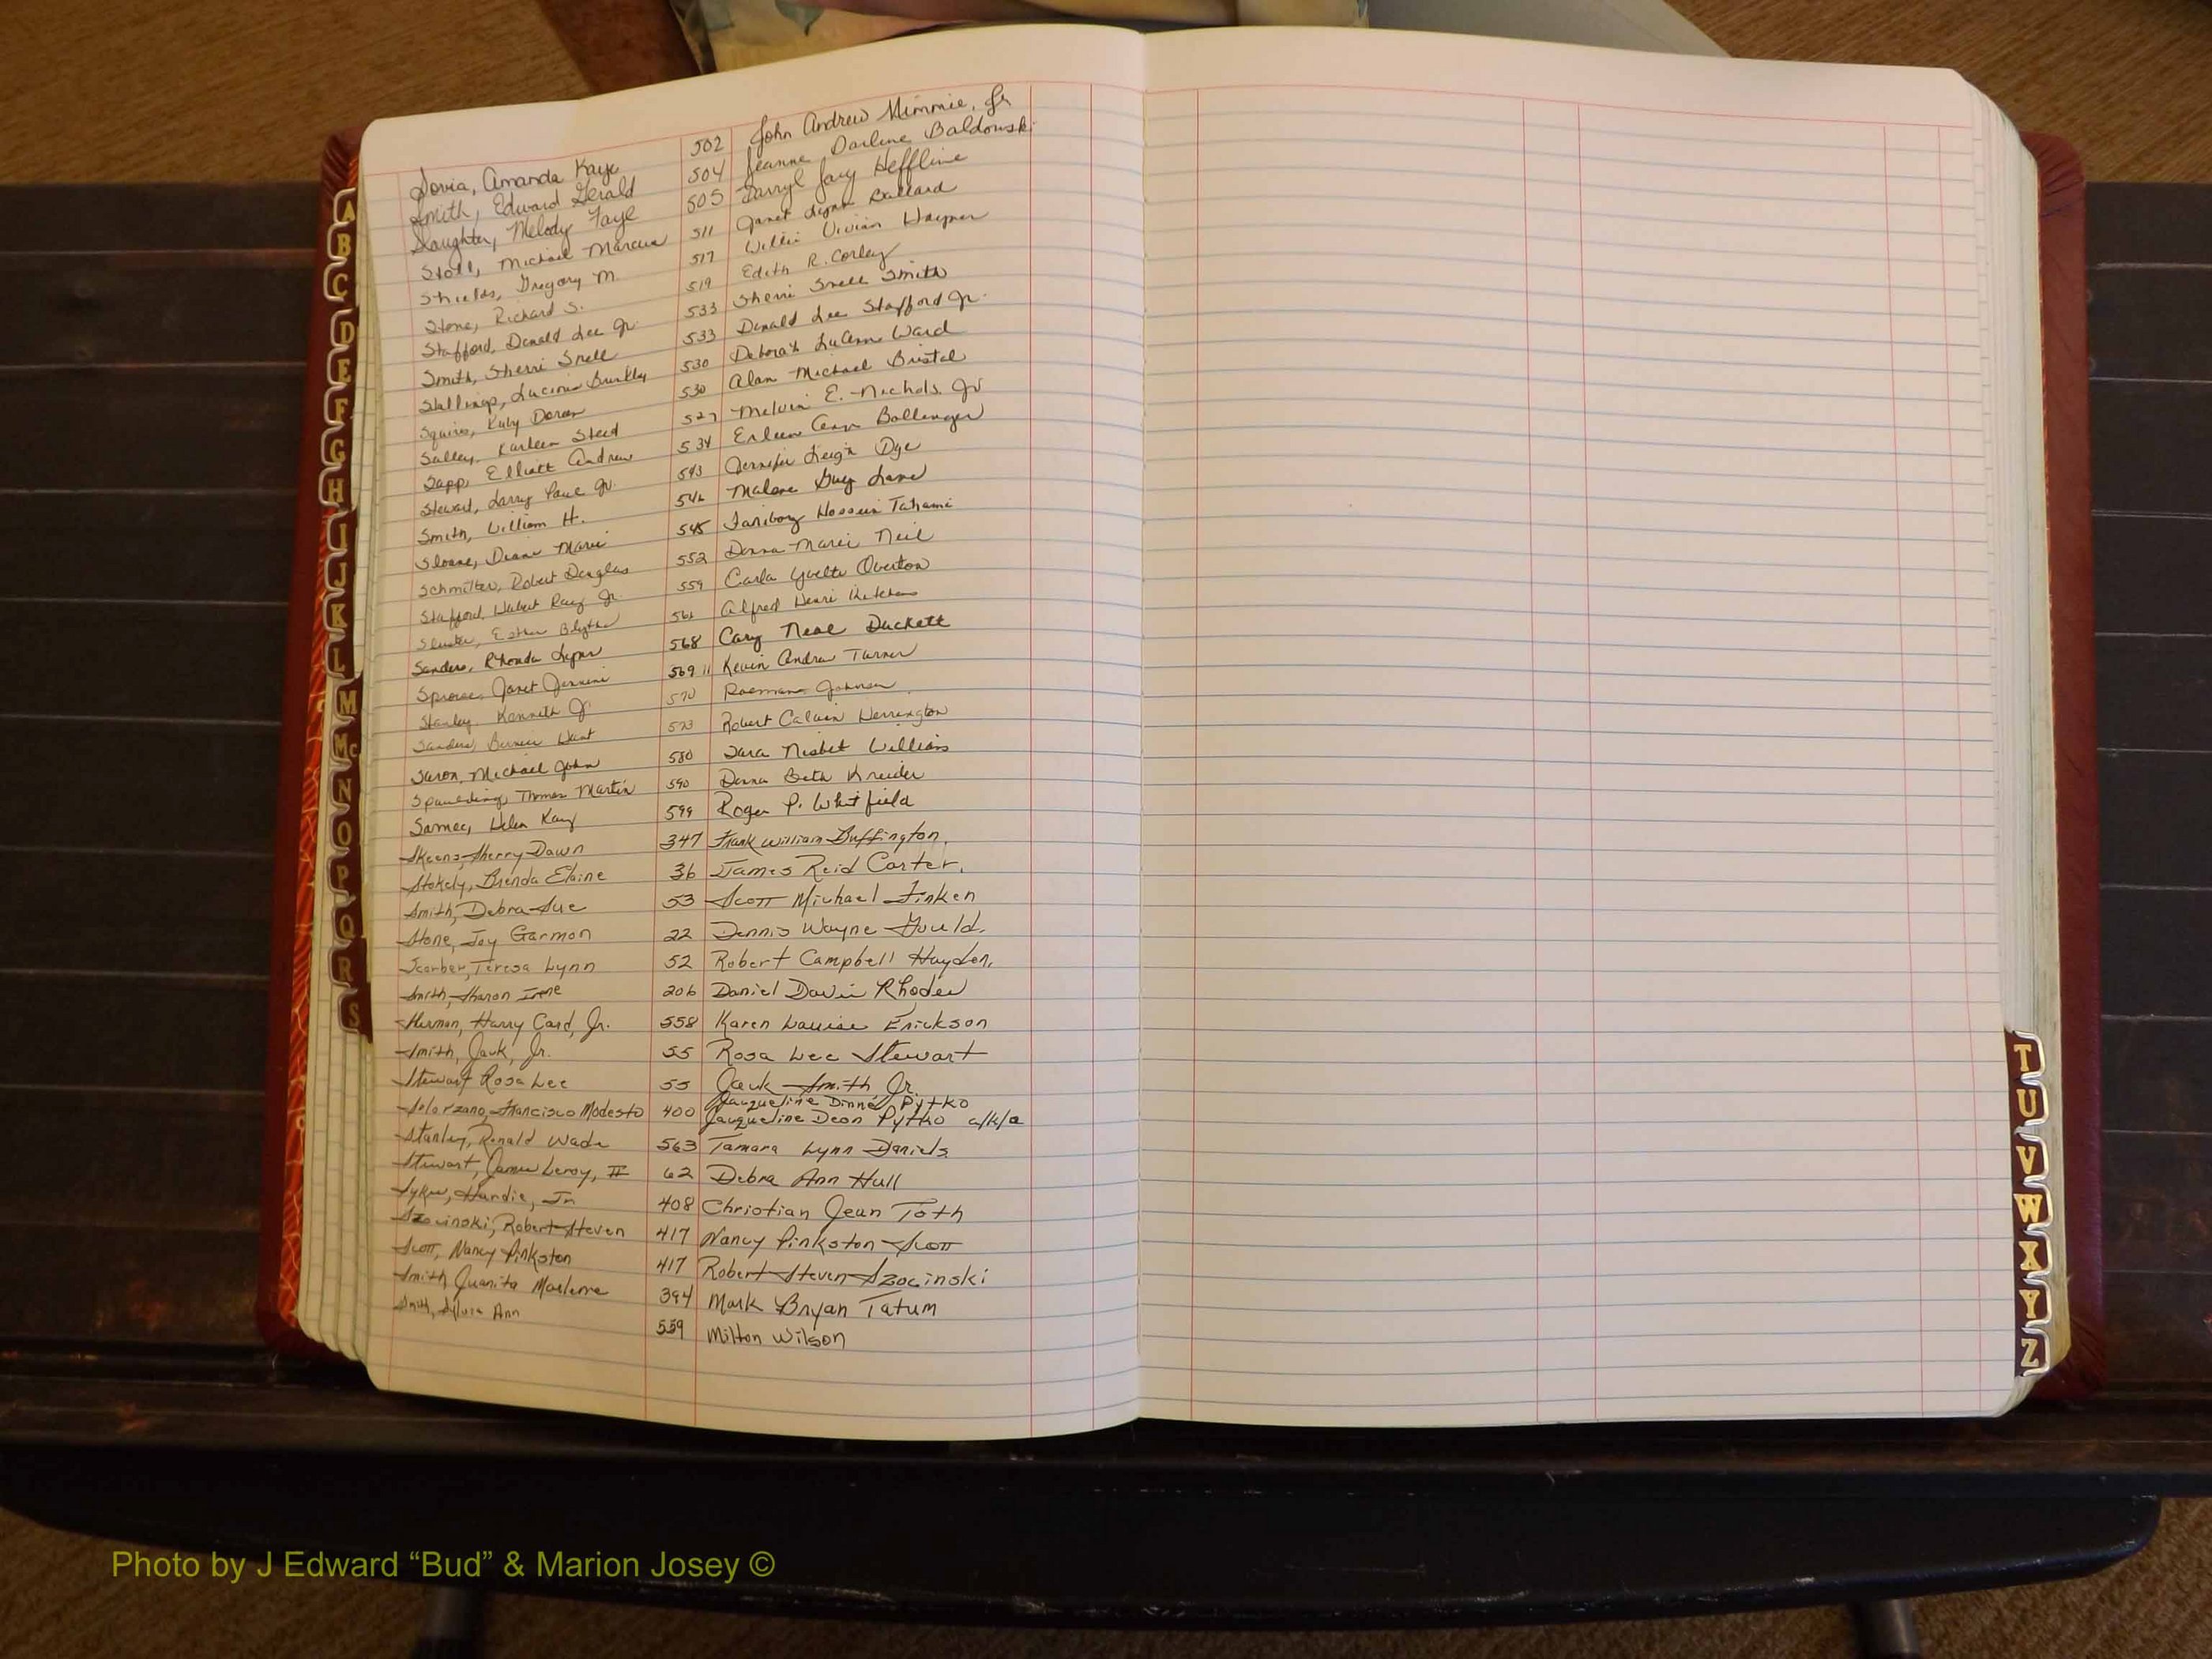 Sovia, Amanda Kaye 502 John Andrew Mimmie, Jr
Smith, Edward Gerald 504 Jeanne Darline Baldowski
Slaughter, Melody Faye 505 Darryl Jay Heffline
Stoll, Michael Marcus 511 Janet Lynn Ballard
Shields, Gregory M. 517 Willie Vivian Haymer
Stone, Richard S. 519 Edith R. Corley
Stafford, Donald Lee Jr. 533 Sherri Snell Smith
Smith, Sherri Snell 533 Donald Lee Stafford Jr.
Stallings, Lucinda 530 Deborah LuAnn Ward
Squires, Ruby Doran 530 Alan Michael Bristol
Salley, Karleen Steed 527 Melvin E. Nichols Jr
Sapp, Elliott Andrew 534 Erleen Ann Bollenger
Steward, Larry Paul Jr. 543 Jennifer Leigh Dye
Smith, William H. 546 Malone Guy Lane
Sloane, Diane Marie 545 Fariborz Hossein Tahami
Schmitter, Robert Douglas 552 Donna Marie Neil
Stafford, Hubert Ray Jr. 559 Carla Yvette Overton
Esther Blythe 561 Alfred Henri
Sanders, Rhonda Lynn 568 Cary Neal Duckett
Sprouse, Janet Jennine 569 11 Kevin Andrew Turner
Stanley, Kenneth J. 570 Johnson
Sanders, Bernice Hunt 573 Robert Calvin Herrington
Saron, Michael John 580 Sara Nisbet Williams
Spaulding, Thomas Martin 590 Donna Beth Kreider
Samec, Helen Kay 599 Roger P. Whitfield
Skeens, Sherry Dawn 347 Frank William Buffington,
Stokely, Brenda Elaine 36 James Reid Carter,
Smith, Debra Sue 53 Scott Michael Finken
Stone, Joy Garmon 22 Dennis Wayne Gould,
Scarber, Teresa Lynn 52 Robert Campbell Hayden,
Smith, Sharon Irene 206 Daniel David Rhoden
Harry Card, Jr. 558 Karen Louise Erickson
Smith, Jack, Jr. 55 Rosa Lee Stewart
Stewart Rosa Lee 55 Jack Smith Jr.
Solorzano, Francisco Modesto 400 Jacqueline Dinné Pytko
Jacqueline Dean Pytko a/k/a
Stanley, Ronald Wade 563 Tamara Lynn Daniels
Stewart, James Leroy, II 62 Debra Ann Hull
Sykes, Hardie, Jr 408 Christian Jean Toth
Szocinski, Robert Steven 417 Nancy Pinkston Scott
Scott, Nancy Pinkston 417 Robert Steven Szocinski
Smith Juanita Maelene 394 Mark Bryan Tatum
Smith, Sylvia Ann 559 Milton Wilson
A
B
C
D
E
F
G
H
I
J
K
L
M
Mc
N
O
P
Q
R
S
T
U
V
W
X
Y
Z
Photo by J Edward “Bud” & Marion Josey ©